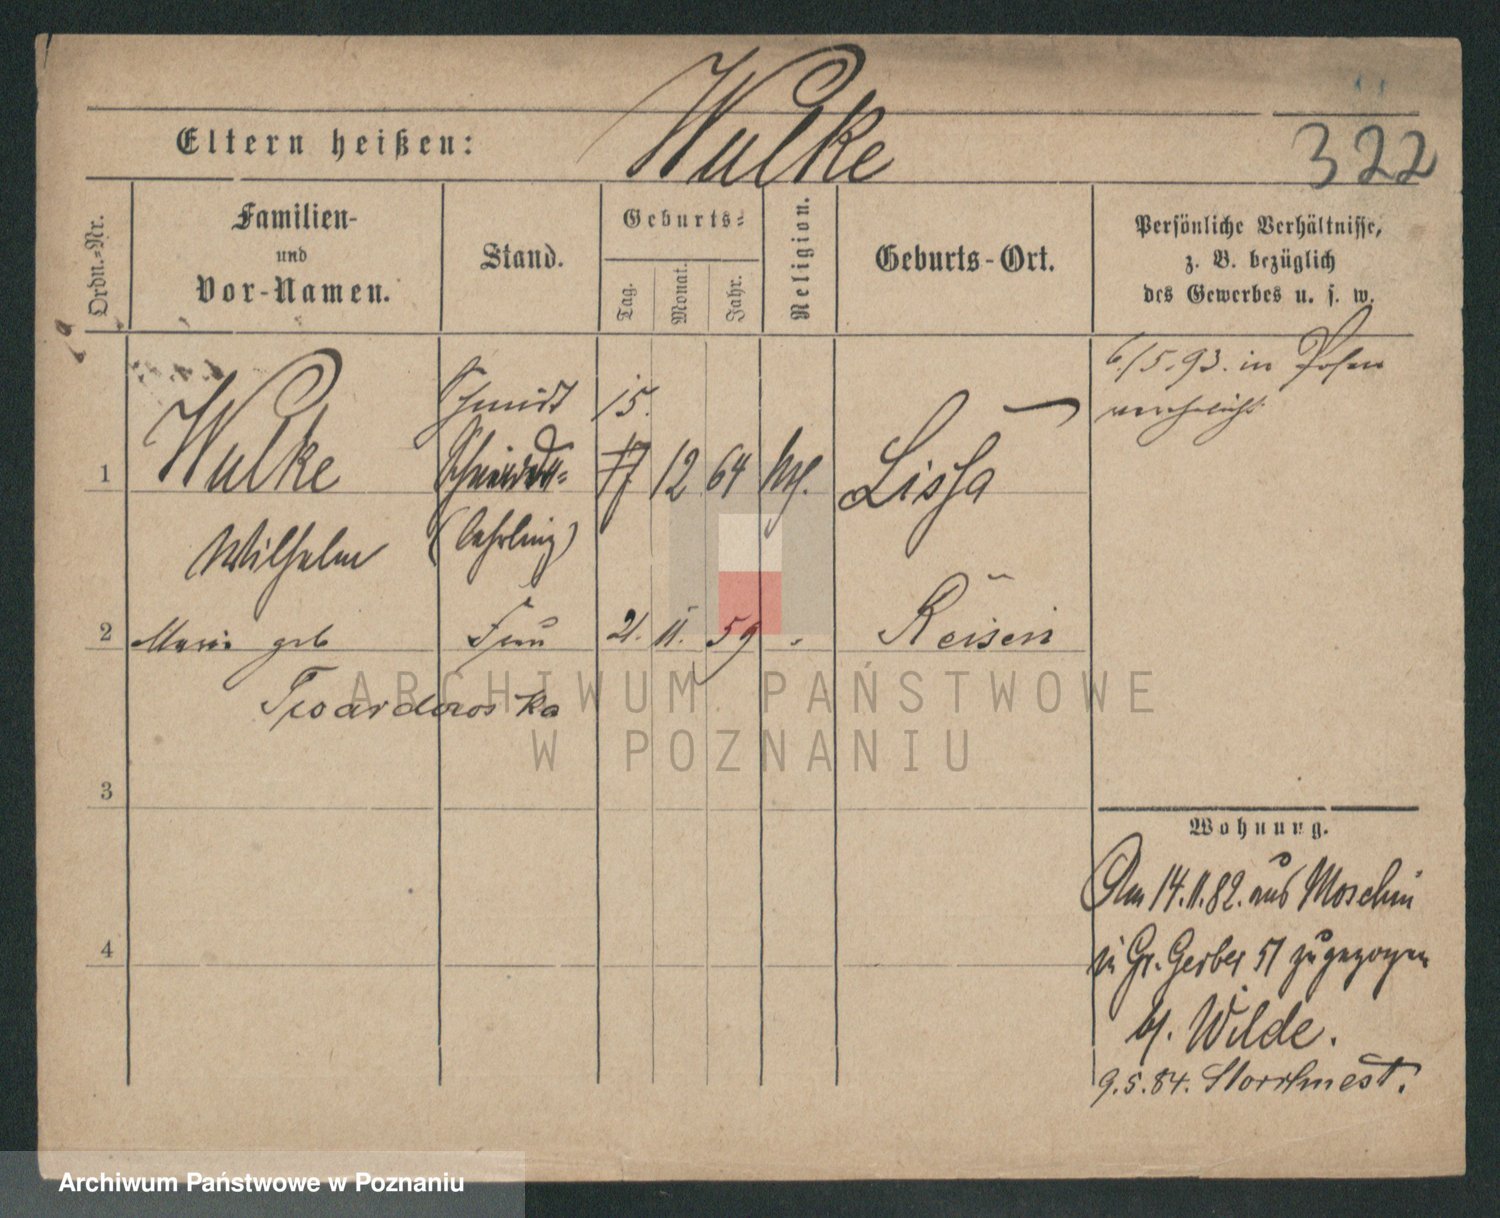 Wulke
Eltern heißen:
322
Ordn.-Nr.
Familien-
und
Vor-Namen.
Stand.
Geburts-
Tag.
Monat.
Jahr.
Religion.
Geburts-Ort.
Persönliche Verhältnisse,
z. B. bezüglich
des Gewerbes u. s. w.
6/5.93. in Posen
verehelicht
1
Wulke
Schmidt
15.
17 12 64
Lissa
Wilhelm
(Lehrling)
2
Marie geb
Frau
21. 11. 59
Reisen
Twardowska
ARCHIWUM PAŃSTWOWE
W POZNANIU
3
Wohnung.
Am 14.11.82. aus Moschin
in Gr. Gerber 51 zugezogen
bf. Wilde.
9.5.84. Storchnest.
4
Archiwum Państwowe w Poznaniu